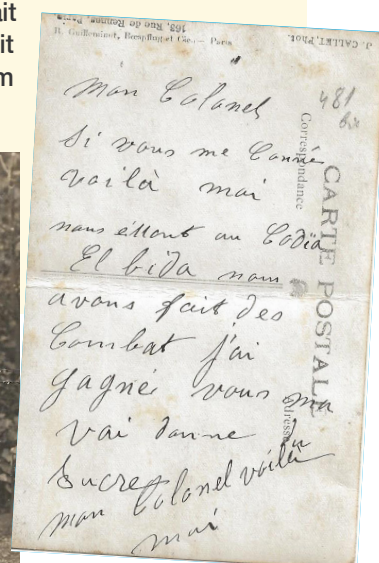 ait
it
m
163, Rue de Rennes, Paris
R. Guilleminot, Bœspflug et Cie. — Paris
J. CALLET, Phot.
481
bis
CARTE POSTALE
Correspondance
Adresse
Mon Colonel
Si vous me Conné
voilà moi
nous éttont au Codïa
El bida nous
avons fait des
Combat j'ai
gagnée vous ma
vai donne du
Sucre
mon Colonel voilà
moi